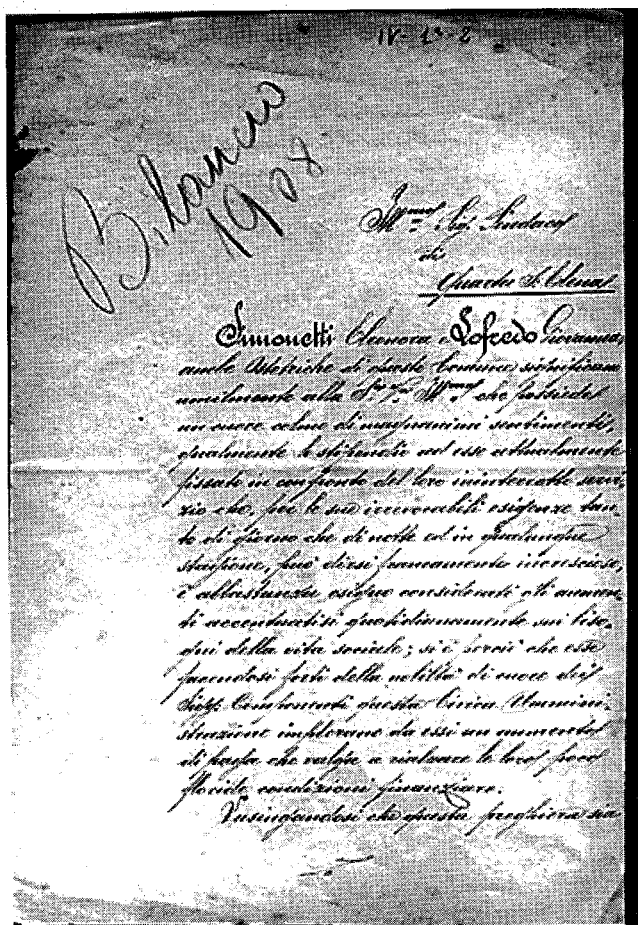 IV-1-2
Bilancio
1908
Ill.mo Sig. Sindaco
di
Quartu S. Elena
Simonetti Eleonora e Lofredo Giovanna,
ambe Ostetriche di questo Comune significano
umilmente alla S. V. Ill.ma che possiede
un cuore colmo di magnanimi sentimenti,
qualmente lo stipendio ad esse attualmente
fissato in confronto del loro ininterrotto servi-
zio che, per le sue inesorabili esigenze tan-
to di giorno che di notte ed in qualunque
stagione, può dirsi francamente
è abbastanza esiguo considerati gli aumen-
ti accentuatisi quotidianamente sui biso-
gni della vita sociale; si è perciò che esse
facendosi forti della nobiltà di cuore dei
Sigg. Componenti questa Civica Ammini-
strazione implorano da essi un aumento
di paga che valga a rialzare le loro poco
floride condizioni finanziare.
Lusingandosi che questa preghiera sia